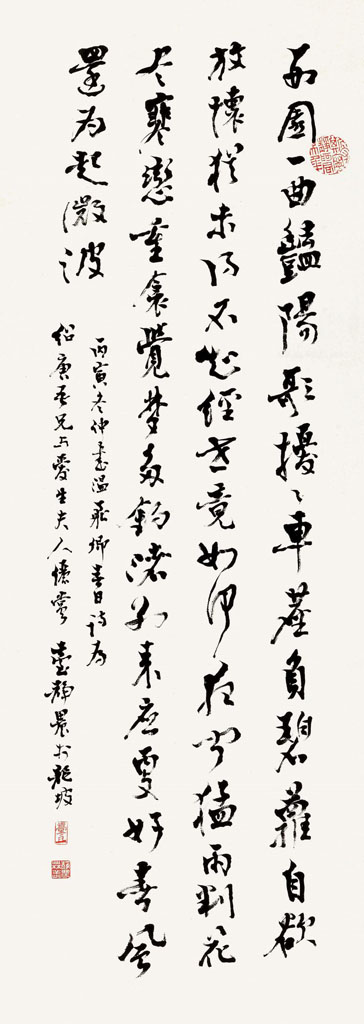 西園一曲豔陽歌擾〻車塵負碧蘿自欲
放懷猶未得不知經世竟如何夜聞猛雨判花
尽寒戀重衾覺夢多釣渚別來應更好春風
還為起微波
丙寅冬仲書溫飛卿春日詩為
紹唐吾兄與愛生夫人儷賞 臺靜農於龍坡